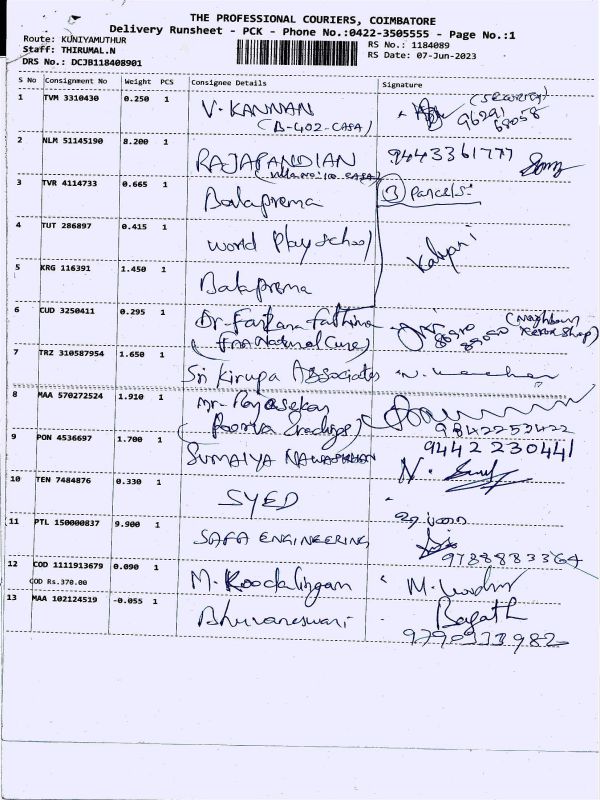 THE PROFESSIONAL COURIERS, COIMBATORE
Delivery Runsheet - PCK - Phone No.:0422-3505555 - Page No.:1
Route: KUNIYAMUTHUR
RS No.: 1184089
Staff: THIRUMAL.N
RS Date: 07-Jun-2023
DRS No.: DCJB118408901
S No Consignment No Weight PCS Consignee Details Signature
1 TVM 3310430 0.250 1 V. KANNAN (SECURITY)
(B-402-CASA) 96291
68058
2 NLM 51145190 8.200 1 RAJAPANDIAN 9443361777
3 TVR 4114733 0.665 1 Balaprema (3) Parcels
4 TUT 286897 0.415 1 World Play school Kalyani
5 KRG 116391 1.450 1 Balaprema
6 CUD 3250411 0.295 1 Dr. Farzana Fathima (Neighbour
(FNA Natural Cure) Xerox Shop)
7 TRZ 310587954 1.650 1 Sri Kirupa Associates
8 MAA 570272524 1.910 1 Mr. Rajasekar
9842253422
9 PON 4536697 1.700 1 SUMAIYA NAWASKHAN 9442230441
10 TEN 7484876 0.330 1 SYED
11 PTL 150000837 9.900 1 SAFA ENGINEERING
9788883364
12 COD 1111913679 0.090 1 M. Koodalingam
COD Rs.370.00
13 MAA 102124519 -0.055 1 Bhuvaneswari Bagath
9790333982